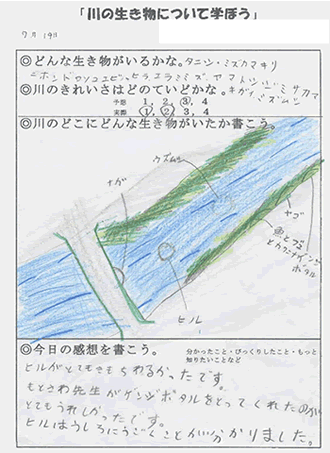 「川の生き物について学ぼう」
7月 19日
◎どんな生き物がいるかな。タニシ・ミズカマキリ
ニホンドロソコエビ、ヒラ、エラミミズ、ヤマトシジミ
◎川のきれいさはどのていどかな。
予想 1, 2, ③, 4
実際 ①, ②, 3, 4
◎川のどこにどんな生き物がいたか書こう。
ウズムシ
ナガ
ヤゴ
魚とエビ
ホタル
ヒル
◎今日の感想を書こう。
分かったこと・びっくりしたこと・もっと
知りたいことなど
ヒルがとてもきもちわるかったです。
もとさわ先生がゲンジボタルをとってくれたのが
とてもうれしかったです。
ヒルはうしろにうごくことが分かりました。